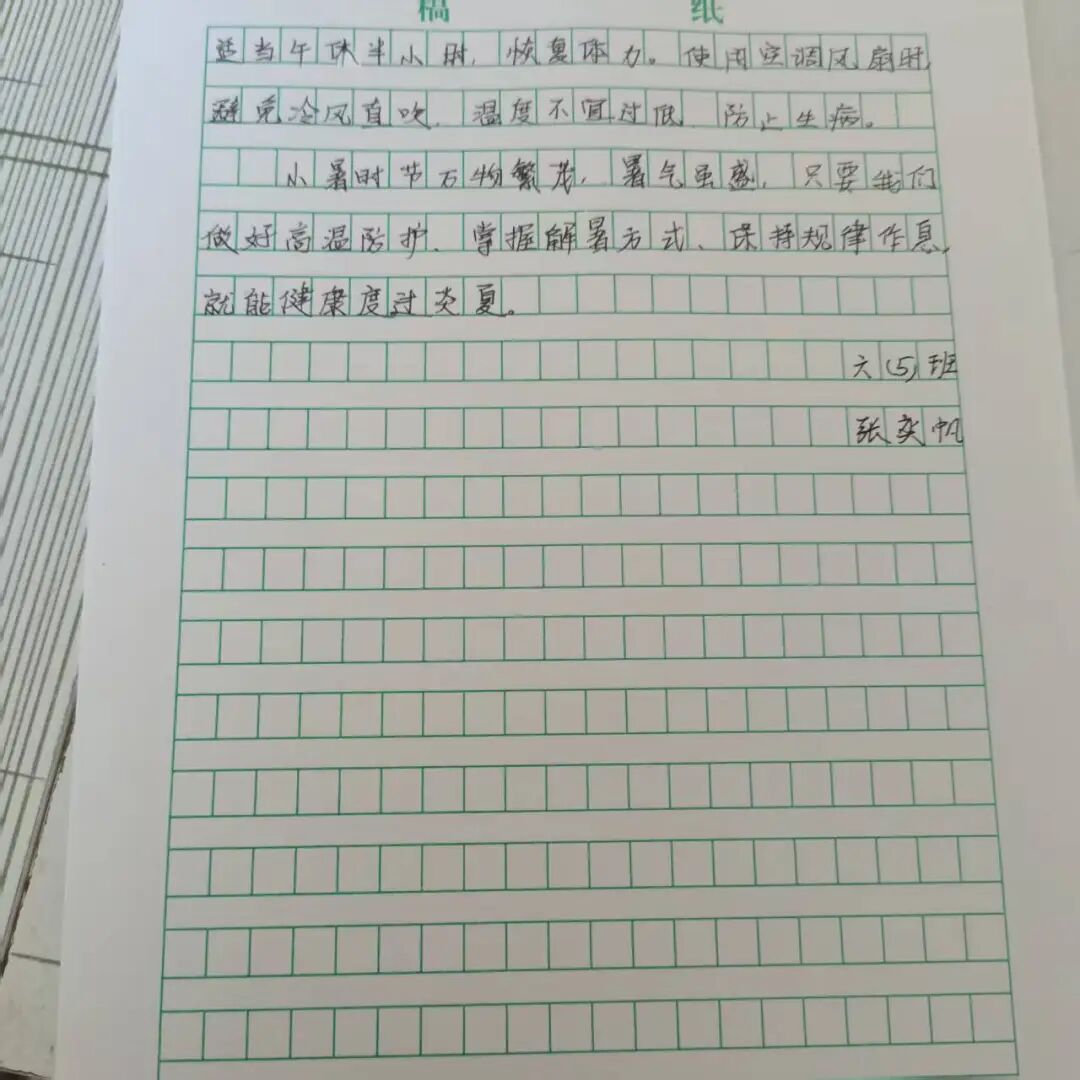 稿 纸
适当午休半小时，恢复体力。使用空调风扇时，
避免冷风直吹，温度不宜过低，防止生病。
小暑时节万物繁茂，暑气虽盛，只要我们
做好高温防护、掌握解暑方式、保持规律作息，
就能健康度过炎夏。
六(5)班
张奕帆